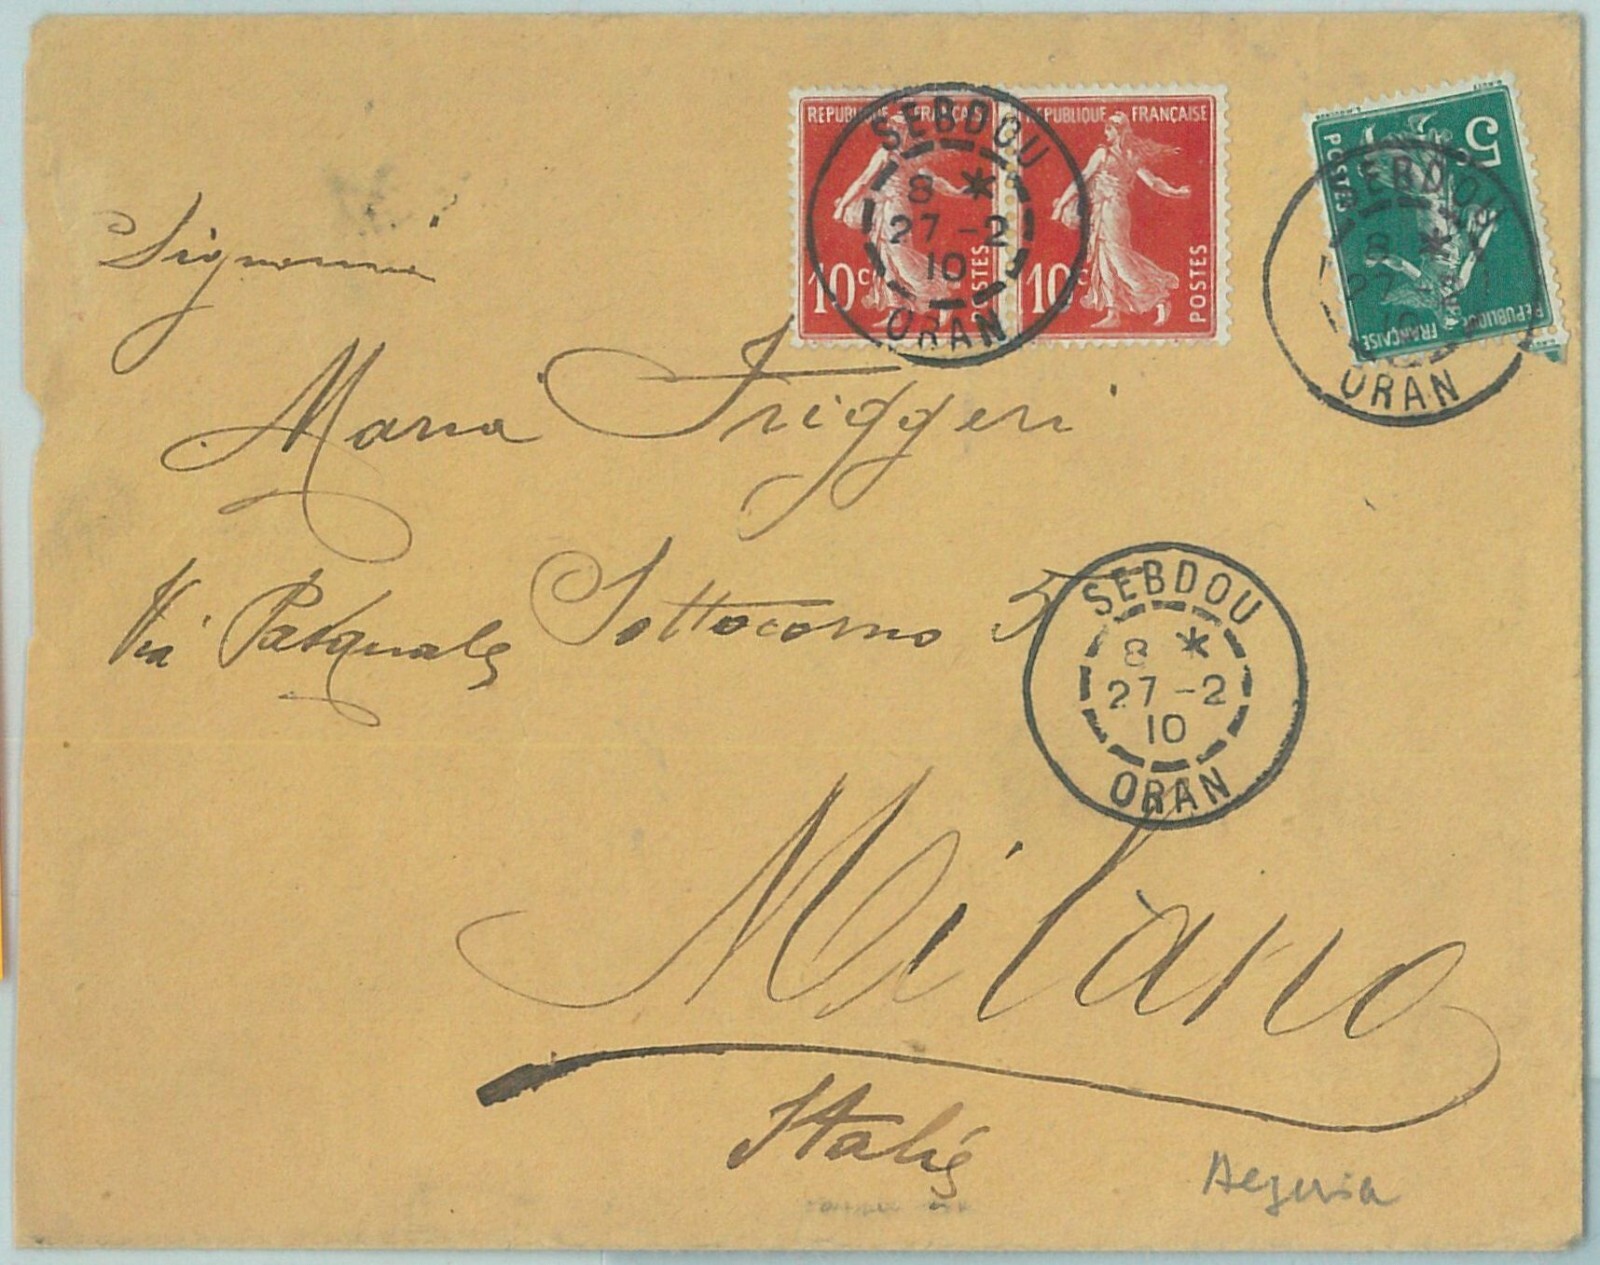 REPUBLIQUE FRANÇAISE
10c POSTES
REPUBLIQUE FRANÇAISE
10c POSTES
SEBDOU
8 *
27-2
10
ORAN
5
POSTES
REPUBLIQUE FRANÇAISE
SEBDOU
8 *
27
10
ORAN
Maria Friggeri
Via Pasquale Sottocorno 5
SEBDOU
8 *
27-2
10
ORAN
Milano
Italie